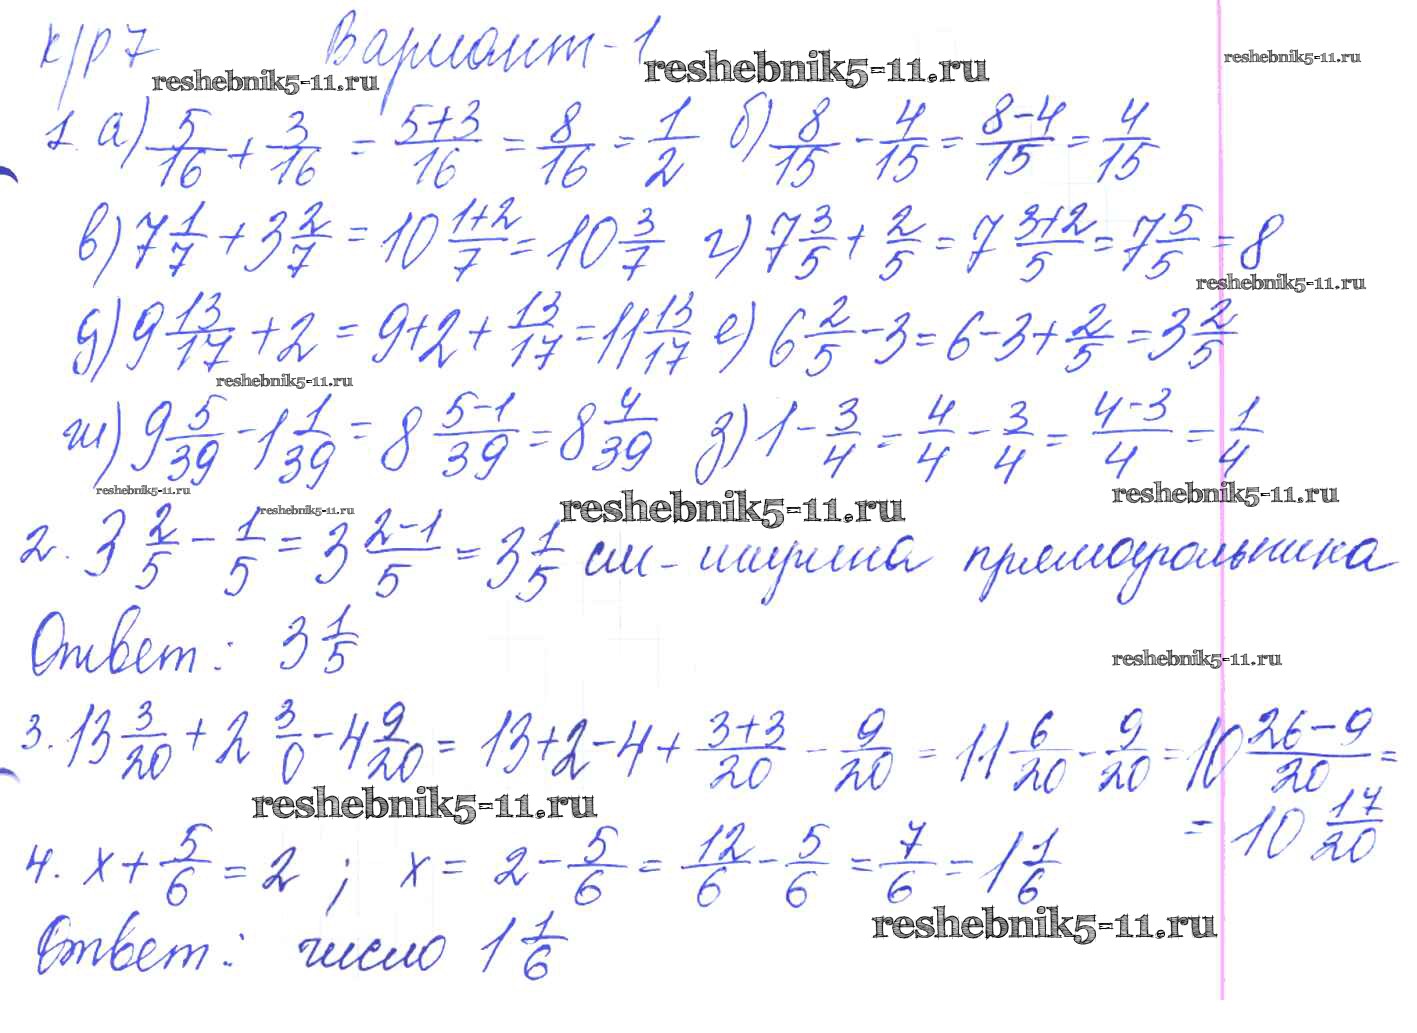 к/р 7 Вариант-1
reshebnik5-11.ru reshebnik5-11.ru reshebnik5-11.ru
1. а) 5/16 + 3/16 = (5+3)/16 = 8/16 = 1/2 б) 8/15 - 4/15 = (8-4)/15 = 4/15
в) 7 1/7 + 3 2/7 = 10 (1+2)/7 = 10 3/7 г) 7 3/5 + 2/5 = 7 (3+2)/5 = 7 5/5 = 8
reshebnik5-11.ru
д) 9 13/17 + 2 = 9+2+ 13/17 = 11 13/17 е) 6 2/5 - 3 = 6-3+ 2/5 = 3 2/5
reshebnik5-11.ru
ж) 9 5/39 - 1 1/39 = 8 (5-1)/39 = 8 4/39 з) 1 - 3/4 = 4/4 - 3/4 = (4-3)/4 = 1/4
reshebnik5-11.ru reshebnik5-11.ru reshebnik5-11.ru reshebnik5-11.ru
2. 3 2/5 - 1/5 = 3 (2-1)/5 = 3 1/5 см - ширина прямоугольника
Ответ: 3 1/5
reshebnik5-11.ru
3. 13 3/20 + 2 3/0 - 4 9/20 = 13+2-4+ (3+3)/20 - 9/20 = 11 6/20 - 9/20 = 10 (26-9)/20 =
= 10 17/20
reshebnik5-11.ru
4. x + 5/6 = 2 ; x = 2 - 5/6 = 12/6 - 5/6 = 7/6 = 1 1/6
reshebnik5-11.ru
Ответ: число 1 1/6